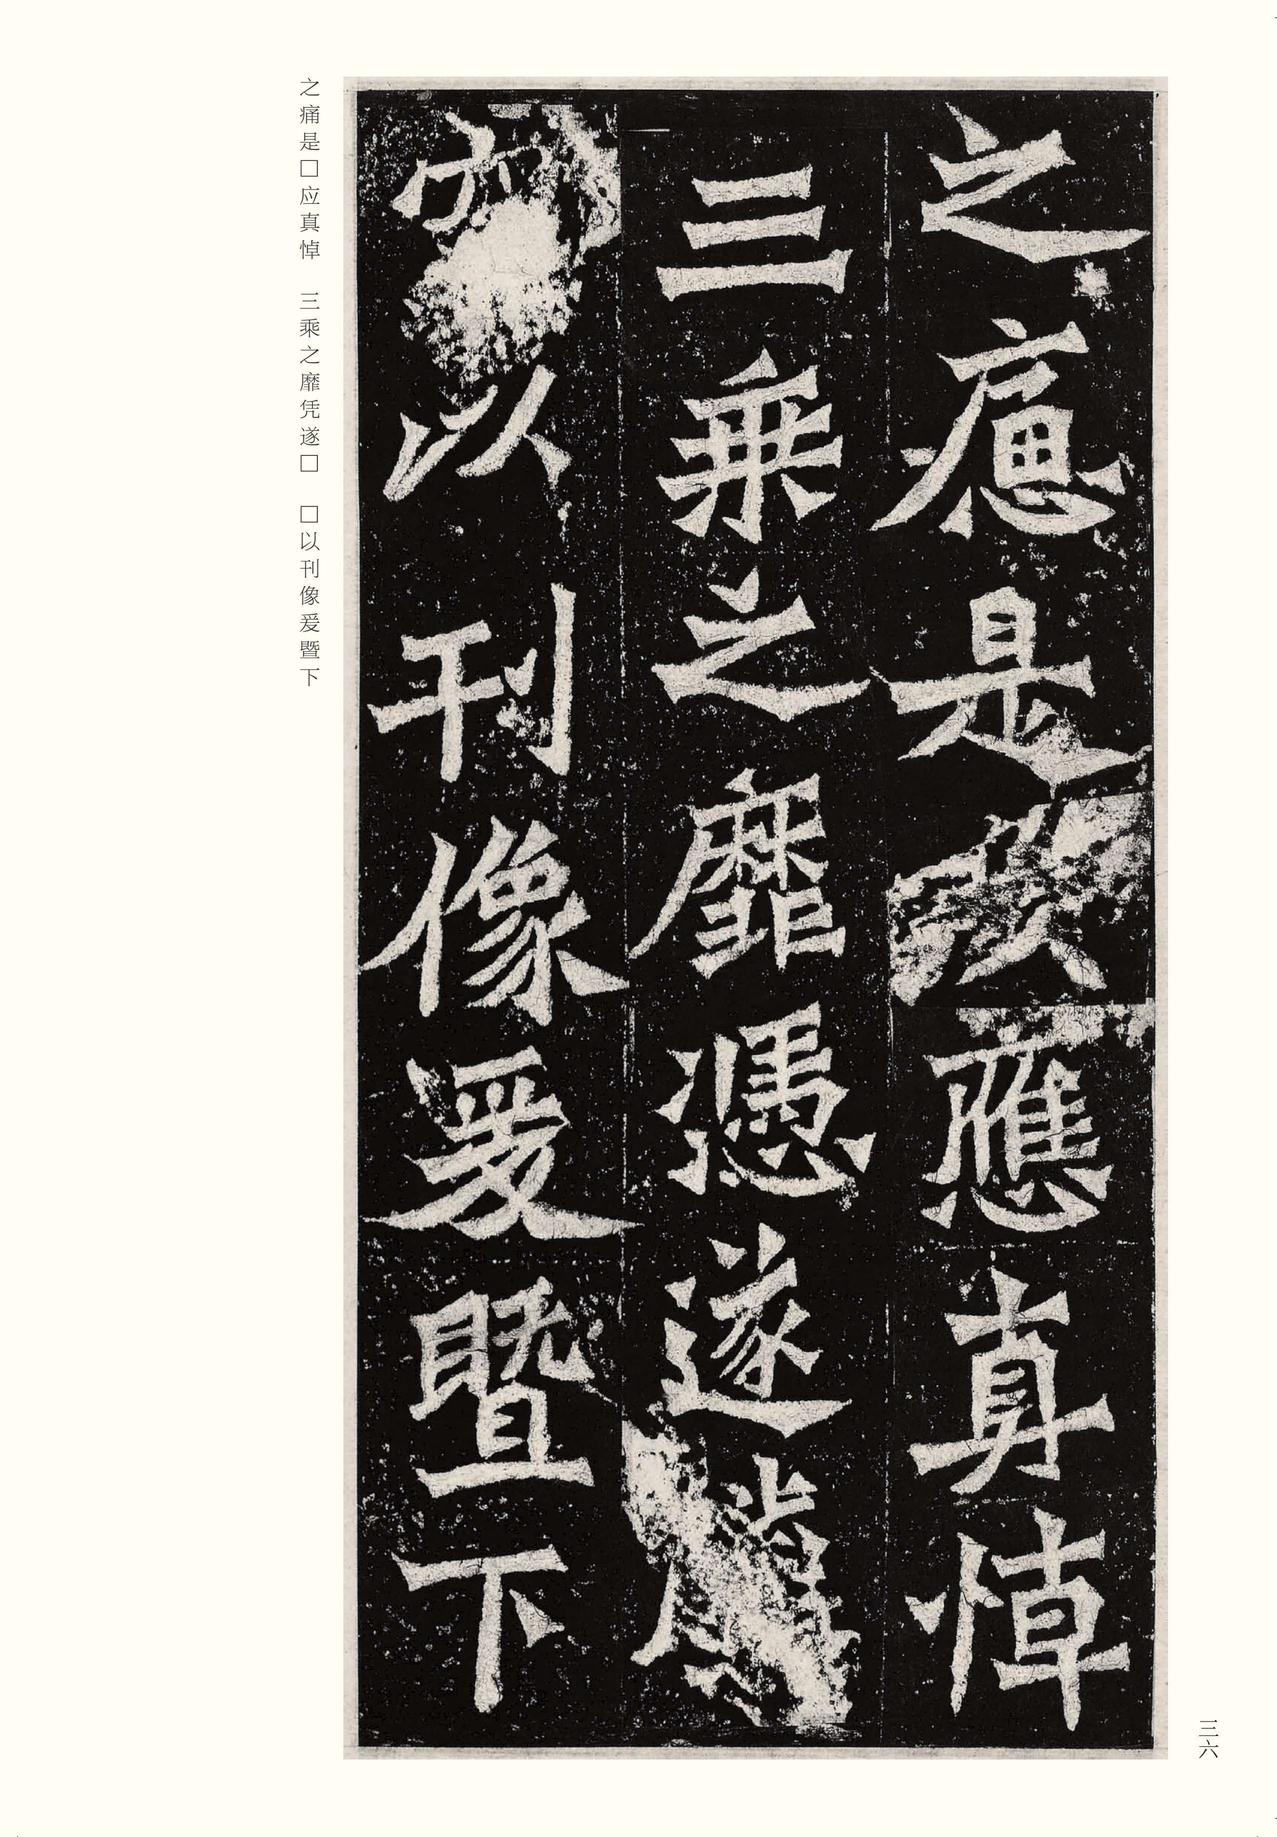 之是應真悼
三乘之靡憑遂
以刊像爰暨下
之痛是□应真悼　三乘之靡凭遂□　□以刊像爰暨下
三六